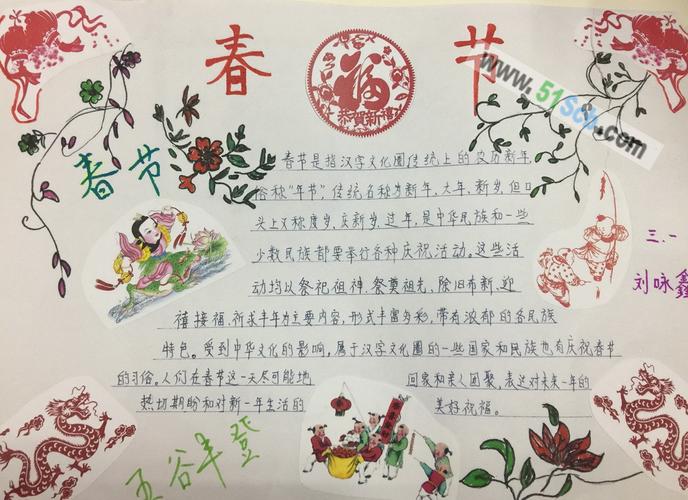 春 节
恭賀新禧
福
www.51Sch.com
春节
春节是指汉字文化圈传统上的农历新年,
俗称“年节”,传统名称为新年、大年、新岁,但口
头上又称度岁、庆新岁、过年,是中华民族和一些
少数民族都要举行各种庆祝活动。这些活
动均以祭祀祖神、祭奠祖先、除旧布新、迎
禧接福、祈求丰年为主要内容,形式丰富多彩,带有浓郁的各民族
特色。受到中华文化的影响,属于汉字文化圈的一些国家和民族也有庆祝春节
的习俗。人们在春节这一天尽可能地 回家和亲人团聚,表达对未来一年的
热切期盼和对新一年生活的 美好祝福。
三、一
刘咏鑫
五谷丰登